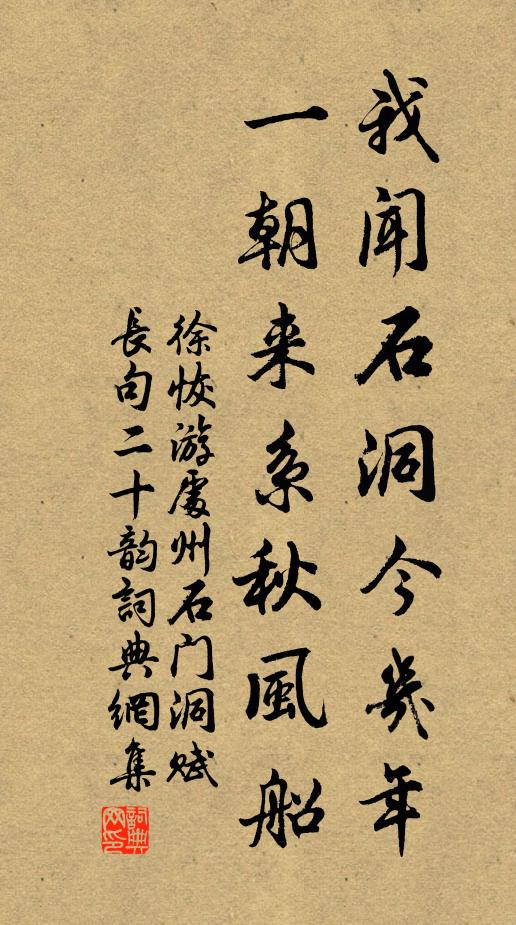 我聞石洞今幾年
一朝来系秋風船
徐恢游處州石门洞賦
長句二十韵詞典網集
詞典网印